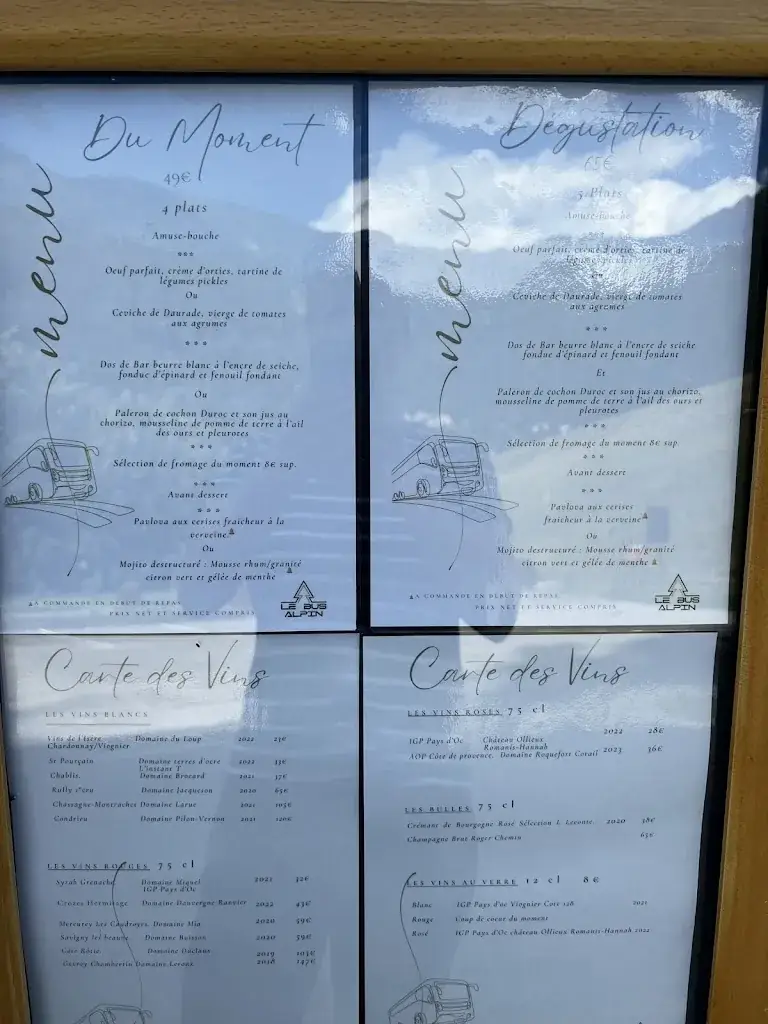 Du Moment
49€
menu
4 plats
Amuse-bouche
***
Oeuf parfait, crème d'orties, tartine de
légumes pickles
Ou
Ceviche de Daurade, vierge de tomates
aux agrumes
***
Dos de Bar beurre blanc à l'encre de seiche,
fondue d'épinard et fenouil fondant
Ou
Paleron de cochon Duroc et son jus au
chorizo, mousseline de pomme de terre à l'ail
des ours et pleurotes
***
Sélection de fromage du moment 8€ sup.
***
Avant dessert
***
Pavlova aux cerises fraicheur à la
verveine
Ou
Mojito destructuré : Mousse rhum/granité
citron vert et gélée de menthe
A COMMANDE EN DEBUT DE REPAS
PRIX NET ET SERVICE COMPRIS
LE BUS
ALPIN
Dégustation
65€
menu
5 Plats
Amuse-bouche
***
Oeuf parfait, crème d'orties, tartine de
légumes pickles
Ou
Ceviche de Daurade, vierge de tomates
aux agrumes
***
Dos de Bar beurre blanc à l'encre de seiche
fondue d'épinard et fenouil fondant
Et
Paleron de cochon Duroc et son jus au chorizo,
mousseline de pomme de terre à l'ail des ours et
pleurotes
***
Sélection de fromage du moment 8€ sup.
***
Avant dessert
***
Pavlova aux cerises
fraicheur à la verveine
Ou
Mojito destructuré : Mousse rhum/granité
citron vert et gélée de menthe
A COMMANDE EN DEBUT DE REPAS
PRIX NET ET SERVICE COMPRIS
LE BUS
ALPIN
Carte des Vins
LES VINS BLANCS
Vins de l'Isère Domaine du Loup 2022
Chardonnay/Viognier
St Pourçain Domaine terres d'ocre 2022 33€
L'instant T
Chablis. Domaine Brocard 2021 37€
Rully 1°cru Domaine Jacqueson 2020 65€
Chassagne-Montrachet Domaine Larue 2021 105€
Condrieu Domaine Pilon-Vernon 2021 120€
LES VINS ROUGES 75 cl
Syrah Grenache Domaine Miquel 2021 32€
IGP Pays d'Oc
Crozes Hermitage Domaine Dauvergne Ranvier 2022 43€
Mercurey Les Domaine Mia 2020 59€
Savigny lès beaune Domaine Buisson 2020 59€
Côte Rôtie Domaine Duclaux 2019 103€
Gevrey Chambertin Domaine Leroux 2018 147€
Carte des Vins
LES VINS ROSES 75 cl
IGP Pays d'Oc Château Ollieux 2022 28€
Romanis-Hannah
AOP Côte de provence. Domaine Roquefort Corail 2023 36€
LES BULLES 75 cl
Crémant de Bourgogne Rosé Sélection L Leconte. 2020 38€
Champagne Brut Roger Chemin 65€
LES VINS AU VERRE 12 cl 8€
Blanc IGP Pays d'oc Viognier Cote 128 2021
Rouge Coup de coeur du moment
Rosé IGP Pays d'Oc château Ollieux Romanis-Hannah 2022